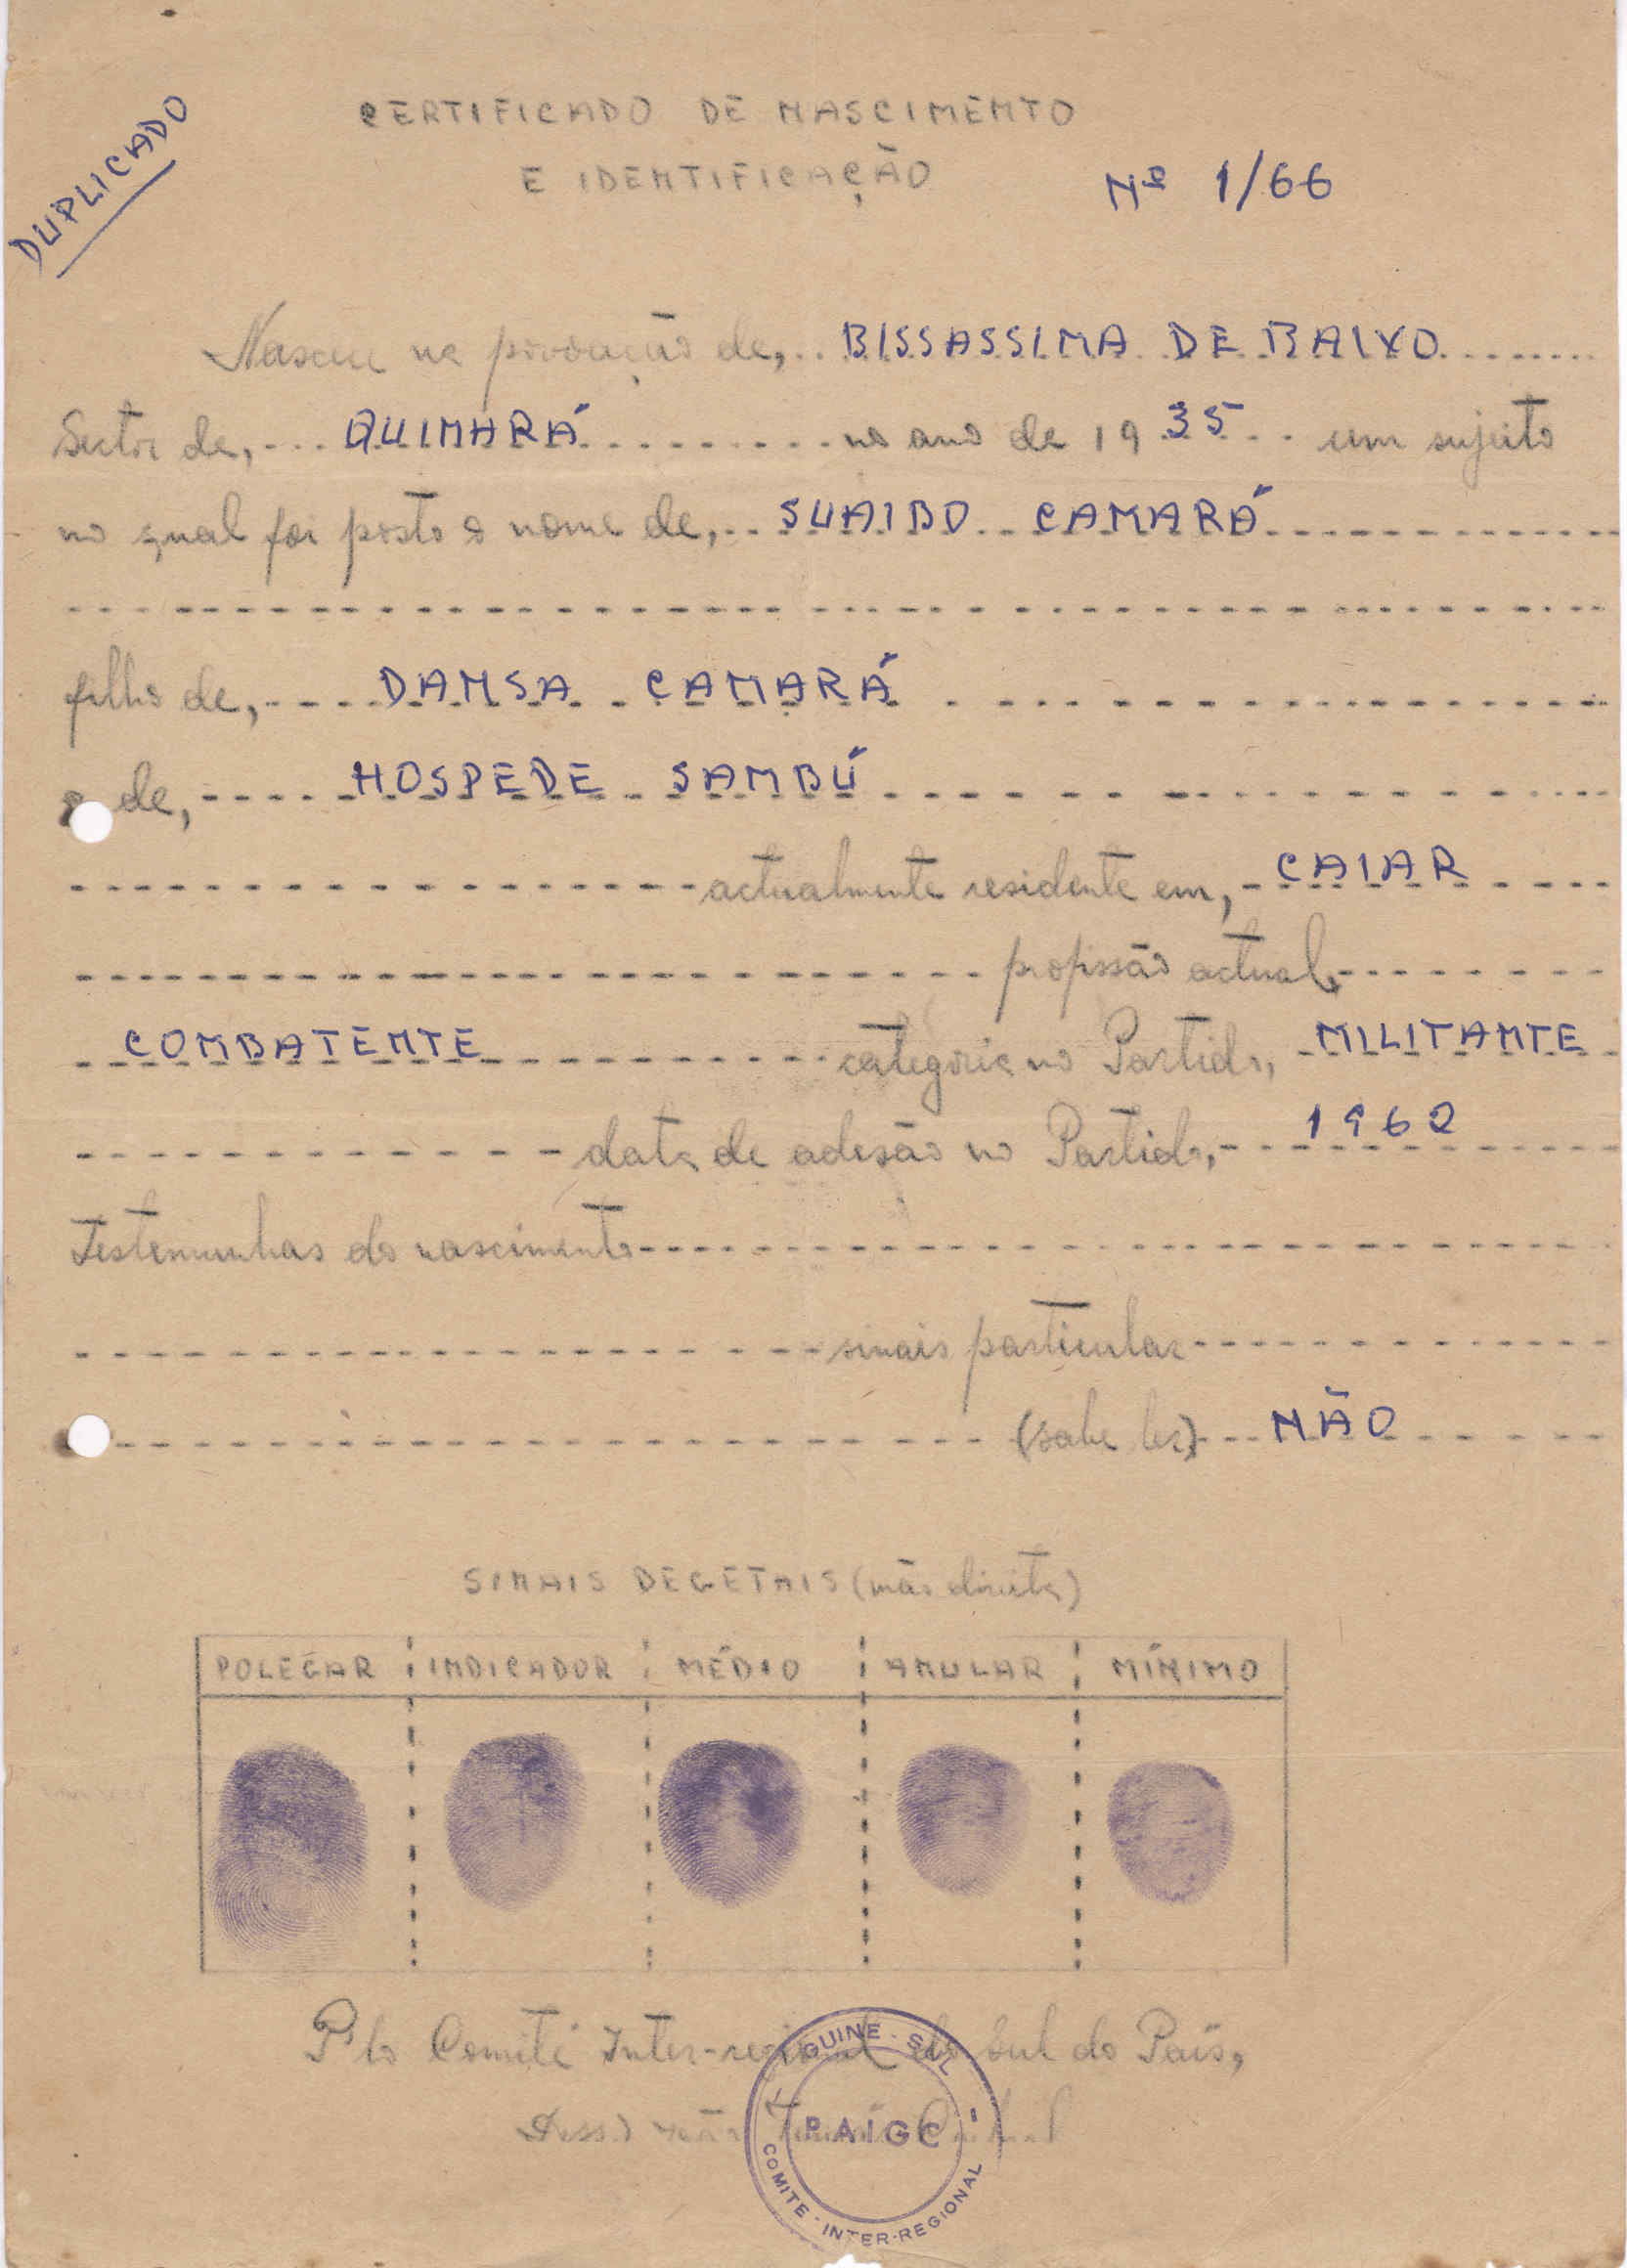 DUPLICADO
CERTIFICADO DE NASCIMENTO
E IDENTIFICAÇÃO Nº 1/66
Nasceu na povoação de, BISSASSIMA DE BAIXO
Sector de, QUINARÁ no ano de 1935 um sujeito
no qual foi posto o nome de, SUAIBO CAMARÁ
filho de, DANSA CAMARÁ
e de, HOSPEDE SAMBÚ
actualmente residente em, CAIAR
profissão actual
COMBATENTE categoria no Partido, MILITANTE
data de adesão no Partido, 1962
Testemunhas do nascimento
sinais particular
(sabe ler) NÃO
SINAIS DEGETAIS (mão direita)
POLEGAR INDICADOR MÉDIO ANULAR MÍNIMO
P'lo Comité Inter-regional do Sul do País,
GUINE - SUL
PAIGC
COMITE - INTER-REGIONAL